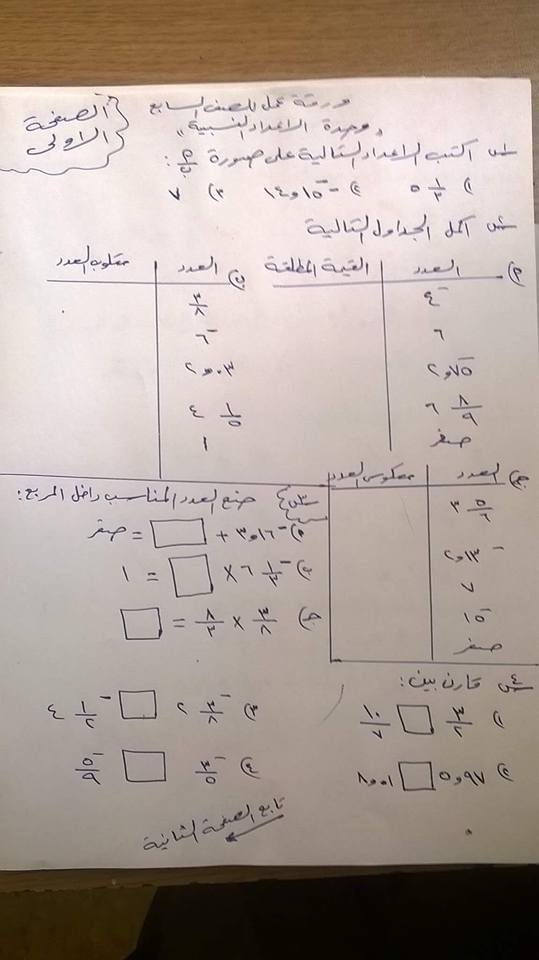 الصفحة الاولى
ورقة عمل للصف السابع
"وحدة الاعداد النسبية"
س١ اكتب الاعداد التالية على صورة م/ب :
١) ٥ ١/٣ ٢) -١٥و١٤ ٣) ٧
س٢ اكمل الجداول التالية
م) العدد | القيمة المطلقة
-٤
٦
-٧٥و٢
٦ ٨/٩
صفر
ب) العدد | مقلوب العدد
٣/٨
-٦
٠٣و٢
٤ ١/٥
١
ج) العدد | معكوس العدد
٣ ٥/٦
-١٣و٢
٧
-١٥
صفر
س٣ ضع العدد المناسب داخل المربع :
م) -١٦و٣ + □ = صفر
ب) -٦ ١/٣ × □ = ١
ج) ٣/٨ × ٨/٣ = □
س٤ قارن بين :
١) ٣/٢ □ ١٠/٧
٢) ٩٧و٥ □ ٠٠١و٨
٣) -٢ ٣/٨ □ -٤ ١/٢
٤) -٣/٥ □ -٥/٩
تابع الصفحة الثانية